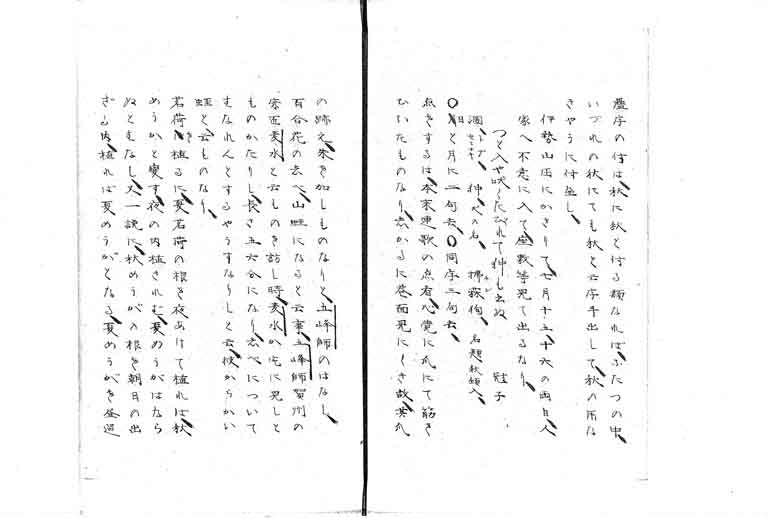 慶字の付は秋に秋と付る類なればふたつの中
いづれの秋にても秋と云字手出して秋の所な
きやうに付
伊勢山庄にかぎりて七月十五十六の両日人
家へ不意に入て座敷等見て出るなり
つと入や吠くたびれて狆も出ぬ
冠子
狆 犬の名
名題秋類入
〇月と月に二句去〇同字三句去
点をするは本来連歌の点者心覚に爪にて筋を
ひいたるものなりしかるに巻面見にくき故其爪
の跡え朱を加しものなりと五峰師のはなし
百合花のしべ山蛭になると云事五峰師賀州の
麦水と云ものを訪し時麦水が宅に見しと
ものかたりし長さ五六分になりしべについて
むなれんとするやうすなりしと云彼からかい
蛭と云ものなり
茗荷を植るに夏茗荷の根を夜あけて植れば秋
めうがと変す夜の内植されむ夏めうがはなら
ぬとむなし又一説に秋めうがの根を朝日の出
ざる内植れば夏めうがとなる夏めうがを昼過